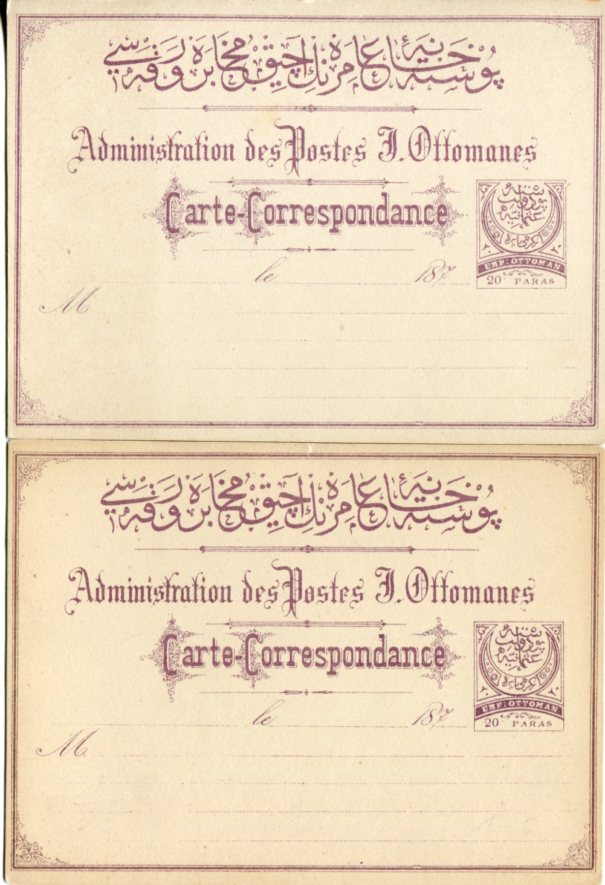 پوسته خانهٔ عامره نك آچيق مخابره ورقه سی
Administration des Postes I. Ottomanes
Carte-Correspondance
٢٠ ٢٠
EMP: OTTOMAN
20 PARAS
le 187
M
پوسته خانهٔ عامره نك آچيق مخابره ورقه سی
Administration des Postes I. Ottomanes
Carte-Correspondance
٢٠ ٢٠
EMP: OTTOMAN
20 PARAS
le 187
M